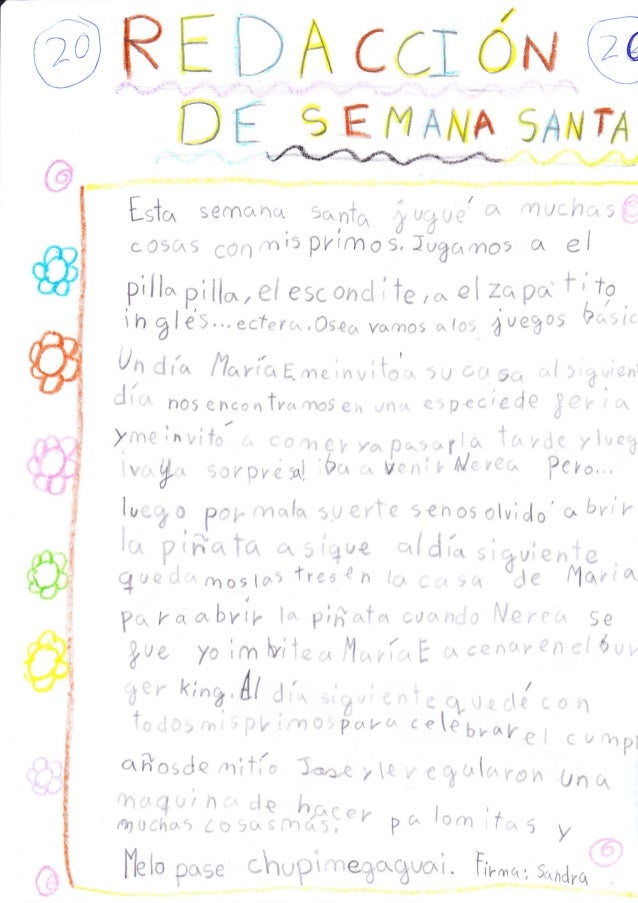 20 REDACCIÓN
DE SEMANA SANTA
Esta semana santa jugué a muchas
cosas con mis primos. Jugamos a el
pilla pilla, el escondite, a el zapatito
inglés... ectera. Osea vamos a los juegos básic
Un día María E me invitó a su casa al siguien
día nos encontramos en una especie de feria
y me invitó a comer y a pasar la tarde y lueg
¡vaya sorpresa! iba a venir Nerea Pero...
luego por mala suerte se nos olvidó abrir
la piñata asique al día siguiente
quedamos las tres en la casa de Maria
para abrir la piñata cuando Nerea se
fue yo imbite a María E a cenar en el bur
ger king. Al día siguiente quedé con
todos mis primos para celebrar el cumpl
años de mi tío Jose y le regalaron una
maquina de hacer palomitas y
muchas cosas más.
Melo pase chupimegaguai. Firma: Sandra